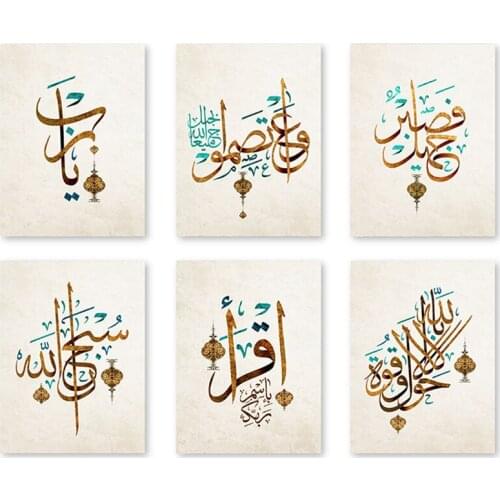 يا رب
واعتصموا بحبل الله جميعا
فَصَبْرٌ جميل
سُبْحَانَ اللّه
اقرأ
بِاسْمِ
رَبِّكَ
لا حول ولا قوة إلا بالله